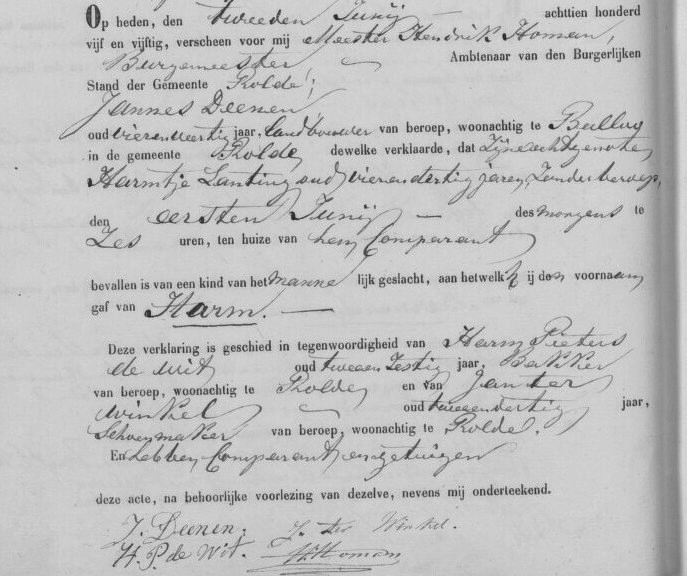 Op heden, den tweeden Junij — achttien honderd
vijf en vijftig, verscheen voor mij Meester Hendrik Homan,
Burgemeester — Ambtenaar van den Burgerlijken
Stand der Gemeente Rolde;
Jannes Deenen
oud vierenveertig jaar, Landbouwer van beroep, woonachtig te Balloo
in de gemeente Rolde, dewelke verklaarde, dat Zijne echtgenote
Harmtje Lanting oud vierendertig jaren, Zonder beroep,
den eersten Junij — des morgens te
Zes uren, ten huize van hem Comparant
bevallen is van een kind van het manne lijk geslacht, aan hetwelk hij den voornaam
gaf van Harm. —
Deze verklaring is geschied in tegenwoordigheid van Harm Pieters
de Wit oud tweeen Zestig jaar, Bakker
van beroep, woonachtig te Rolde, en van Jan ter
Winkel — oud tweeendertig jaar,
Schoenmaker van beroep, woonachtig te Rolde.
En hebben Comparant en getuigen
deze acte, na behoorlijke voorlezing van dezelve, nevens mij onderteekend.
J. Deenen. J. ter Winkel.
H. P. de Wit. H. Homan